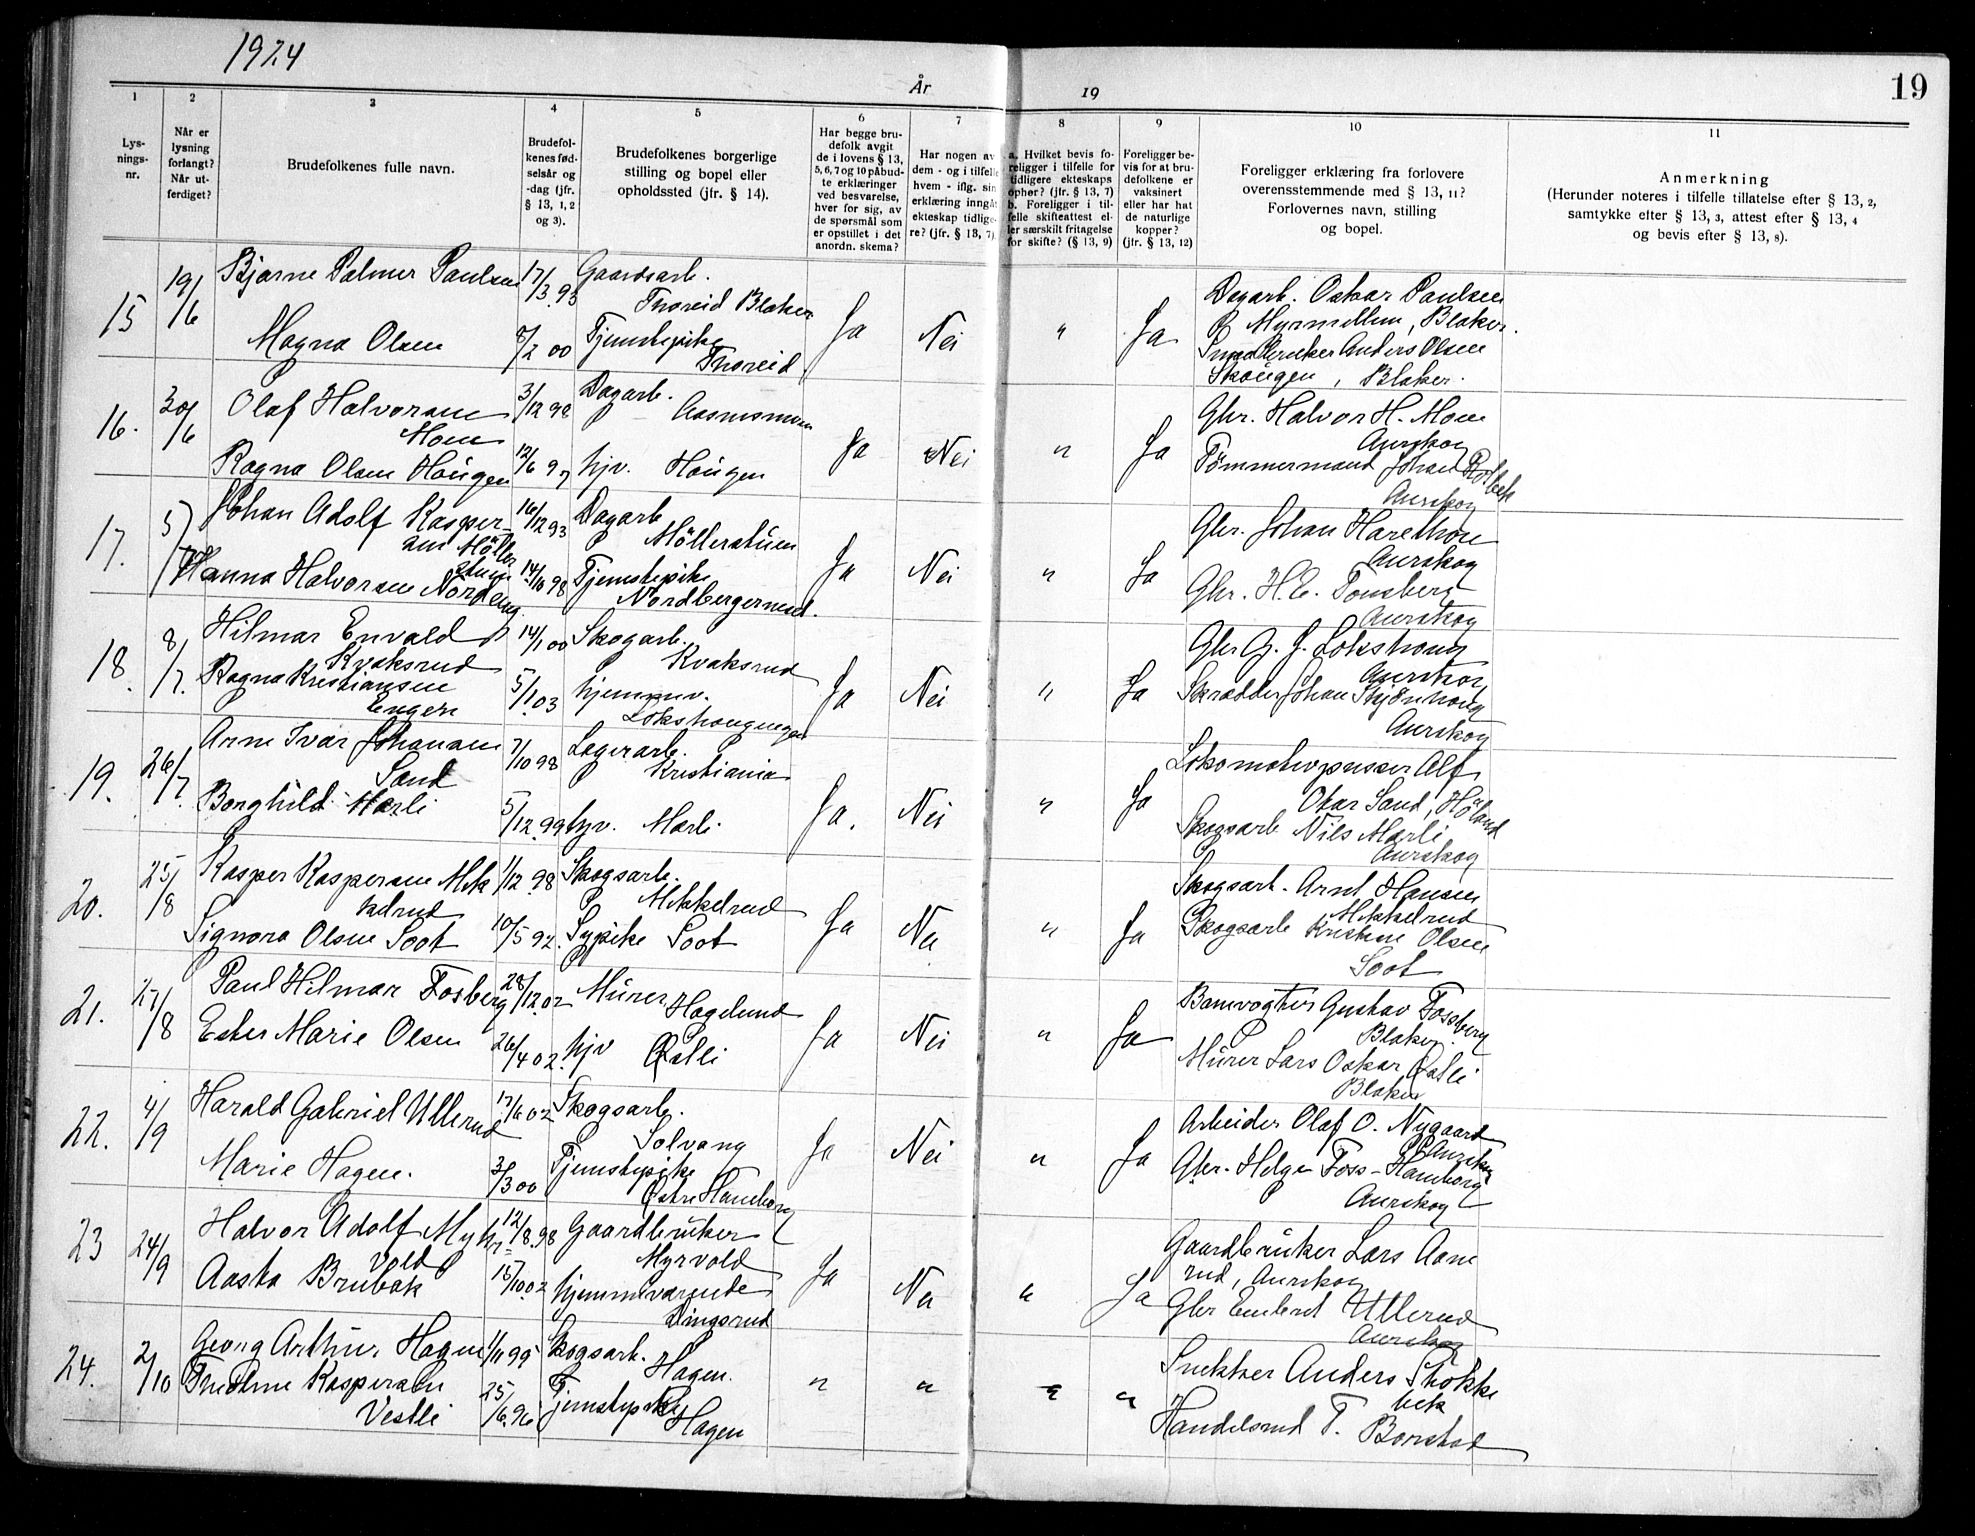 1924
År
19
19
1
2
3
4
5
6
7
8
9
10
11
Lys-
nings-
nr.
Når er
lysning
forlangt?
Når ut-
ferdiget?
Brudefolkenes fulle navn.
Brudefol-
kenes fød-
selsår og
-dag (jfr.
§ 13, 1, 2
og 3).
Brudefolkenes borgerlige
stilling og bopel eller
opholdssted (jfr. § 14).
Har begge bru-
defolk avgit
de i lovens § 13,
5, 6, 7 og 10 påbud-
te erklæringer
ved besvarelse,
hver for sig, av
de spørsmål som
er opstillet i det
anordn. skema?
Har nogen av
dem - og i tilfelle
hvem - iflg. sin
erklæring inngåt
ekteskap tidlige-
re? (jfr. § 13, 7)
a. Hvilket bevis fo-
religger i tilfelle for
tidligere ekteskaps
ophør? (jfr. § 13, 7)
b. Foreligger i til-
felle skifteattest el-
ler særskilt fritagelse
for skifte? (§ 13, 9)
Foreligger be-
vis for at bru-
defolkene er
vaksinert
eller har hat
de naturlige
kopper?
(jfr. § 13, 12)
Foreligger erklæring fra forlovere
overensstemmende med § 13, 11?
Forlovernes navn, stilling
og bopel.
Anmerkning
(Herunder noteres i tilfelle tillatelse efter § 13, 2,
samtykke efter § 13, 3, attest efter § 13, 4
og bevis efter § 13, 8).
15
19/6
Bjarne Palmer Paulsen
17/3.93
Gaardsarb.
Thoreid Blaker
Magna Olsen
8/2 00
Tjenstepike
Thoreid
Ja
Nei
"
Ja
Dagarb. Oskar Paulsen
Myrmellem, Blaker.
Smaabruker Anders Olsen
Skougen, Blaker.
16.
30/6
Olaf Halvorsen
Moen
3/12 98
Dagarb.
Aasmismoen
Ragna Olsen Haugen
12/6 97
hjv. Haugen
Ja
Nei
"
Ja
Gbr. Halvor H. Moen
Aurskog
Tømmermand Johan
Aurskog
17.
5/7
Johan Adolf Kasper-
sen Møller
stuen
16/12 93
Dagarb
Møllerstuen
Hanna Halvorsen Nordeng
14/10 98
Tjenstepike
Nordbergermed.
Ja
Nei
"
Ja
Gbr. Johan Harethon
Aurskog
Gbr. H. E. Tonsberg
Aurskog
18.
8/7.
Hilmar Envald
Kvaksrud
14/1 00
Skogarb.
Kvaksrud
Ragna Kristiansen
Engen
5/1.03
hjemmv.
Ja
Nei
"
Ja
Gbr G. J. Lokshoug
Aurskog
Skrædder Johan Skjønhoug
Aurskog
19.
26/7.
Arne Ivar Johansen
Sand
7/10 98
Lagerarb.
Kristiania
Borghild Mærli
5/12.99
hjv. Mærli
Ja.
Nei
"
Ja
Lokomotivpusser Alf
Okar Sand, Høland
Skogsarb Nils Mærli
Aurskog
20.
25/8
Kasper Kaspersen Mik
kelrud
1/12.98
Skogsarb.
Mikkelrud
Signora Olsen Soot
10/5 92.
Sypike Soot
Ja
Nei
"
Ja
Skogsarb. Arnt Hansen
Mikkelrud
Skogsarb Kristian Olsen
Soot
21.
27/8
Paul Hilmar Fosberg
28/12.02
Murer
Hagelund
Ester Marie Olsen
26/4 02.
hjv Østli
Ja
Nei
"
Ja
Banevogter Gustav Fossberg
Blaker
Murer Lars Oskar Østli
Blaker
22.
4/9
Harald Gabriel Ullerud
17/6 02
Skogsarb.
Solvang
Marie Hagen.
3/3 00
Tjenstepike
Østre Hamborg
Ja
Nei
"
Ja
Arbeider Olaf O. Nygaard
Aurskog
Gbr. Helge Foss-Hamborg
Aurskog
23
24/9
Halvor Adolf Myhr-
vold
12/8.98
Gaardbruker
Myrvold
Aasta Brubak
15/10.02
hjemmeværende
Dingsrud
Ja
Nei
"
Ja
Gaardbruker Lars Aam
rud, Aurskog
Gbr Embret Ullerud
Aurskog
24.
2/10
Georg Arthur Hagen
1/11 99
Skogsarb.
Hagen.
Kaspersen
Vestli
25/6.96
Tjenstepike
Hagen
"
"
"
"
Snekker Anders Stokke
bek
Handelsmd T. Bonstad